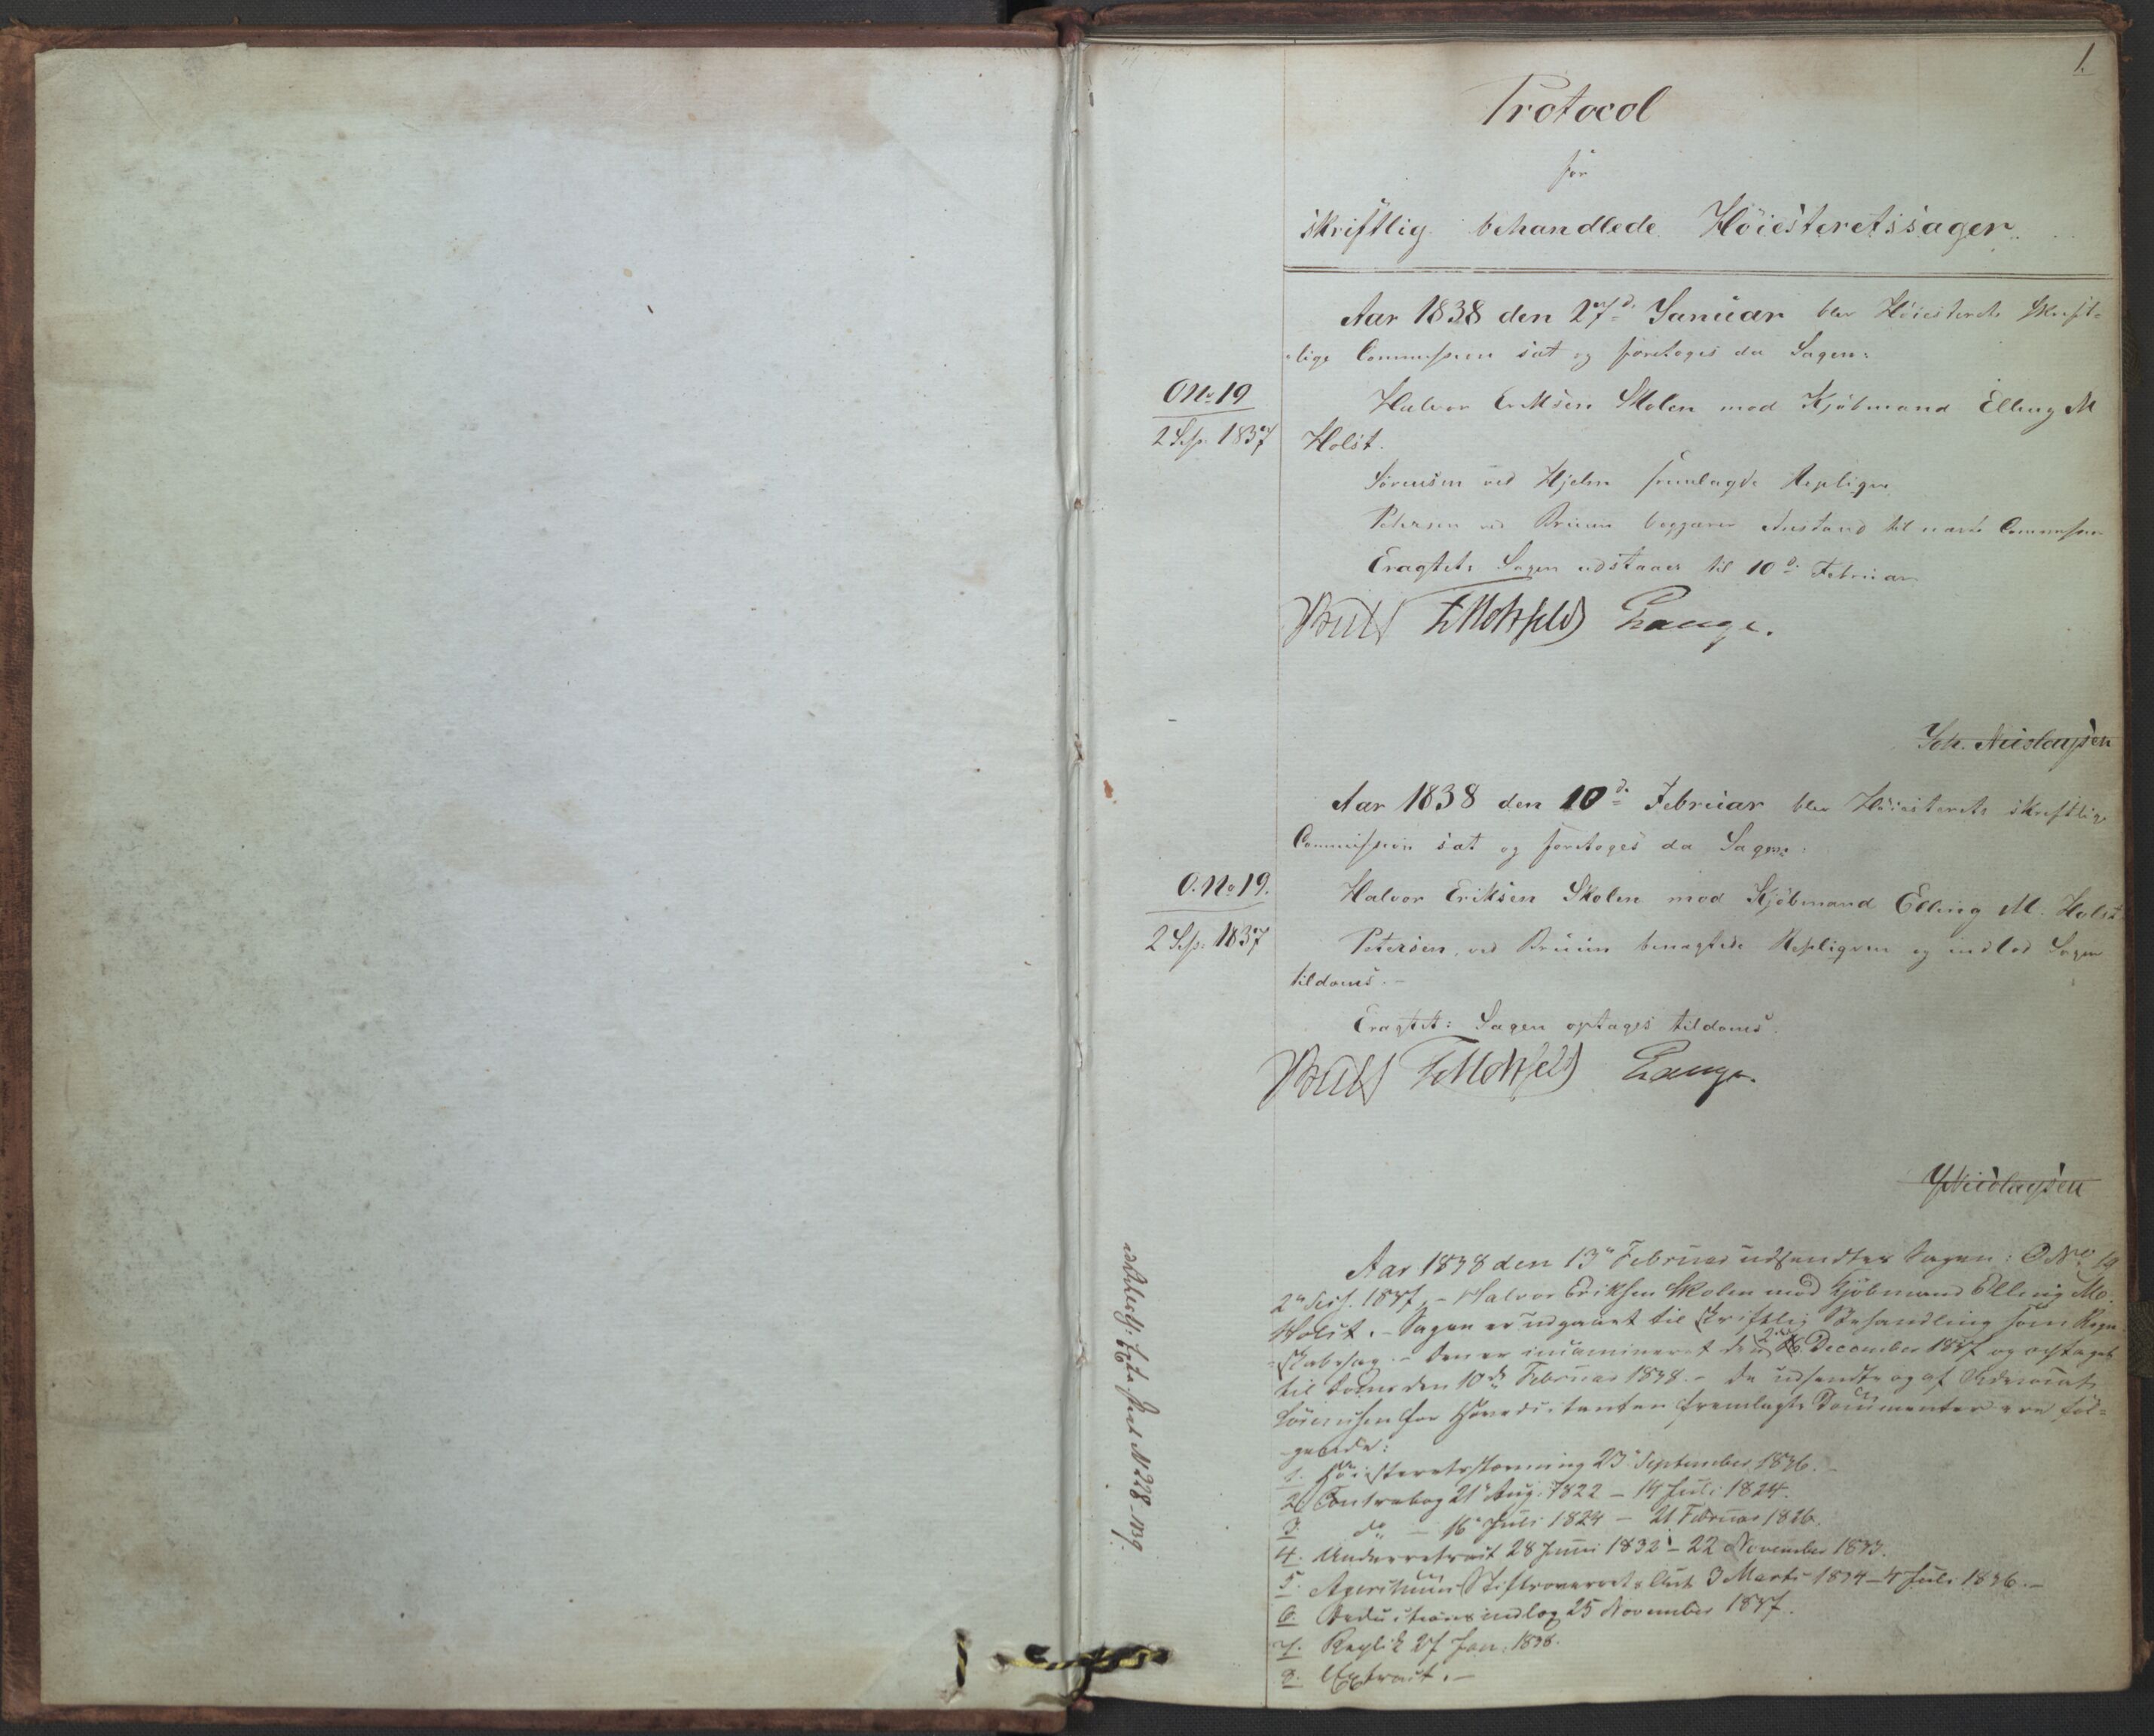 1.
Protocol
for
skriftlig behandlede Höiesteretssager
Aar 1838 den 27d. Januar blev Höiesterets skrift-
lige Commission sat og foretoges da Sagen:
O No 19
2 Ses. 1837
Halvor Eriksen Skolen mod Kjöbmand Elling M
Holst.
Sörensen ved Hjelm fremlagde Repliqve
Petersen ved Bruun begjærer Anstand til næste Commission
Eragtet: Sagen udstaaer til 10d. Februar
Bull F Motzfeldt Lange.
Joh. Nicolaysen
Aar 1838 den 10d. Februar blev Höiesterets skriftlige
Commission sat og foretoges da Sagen:
O. No 19.
2 Ses. 1837
Halvor Eriksen Skolen mod Kjöbmand Elling M. Holst
Petersen, ved Bruun benægtede Repliqven og indlod Sagen
tildoms.-
Eragtet: Sagen optages tildoms.
Bull F Motzfeldt Lange.
J Nicolaysen
Aar 1838 den 13de Februar udsendtes Sagen: O No 19
2den Sess. 1837, - Halvor Eriksen Skolen mod Kjöbmand Elling M.
Holst. - Sagen er udgaaet til skriftlig Behandling som Regn-
skabssag. - Den er incamineret den 2 December 1837 og optaget
til Doms den 10de Februar 1838. - De udsendte og af Advocat
Sörensen for Hovedcitanten fremlagte Documenter ere föl-
gende:
1. Höiesteretsstevning 23 September 1836. -
2. Contrabog 21 Aug. 1822 - 14 Juli 1824.
3. do - 16 Juli 1824 - 21 Februar 1826.
4. Underretsact 28 Juni 1832 - 22 November 1833.
5. Agershuus Stiftsoverrets Act 3 Marts 1834 - 4 Juli 1836. -
6. Deductionsindlæg 25 November 1837.
7. Replik 27 Jan. 1838.
8. Extract. -
No 228 - 1839.